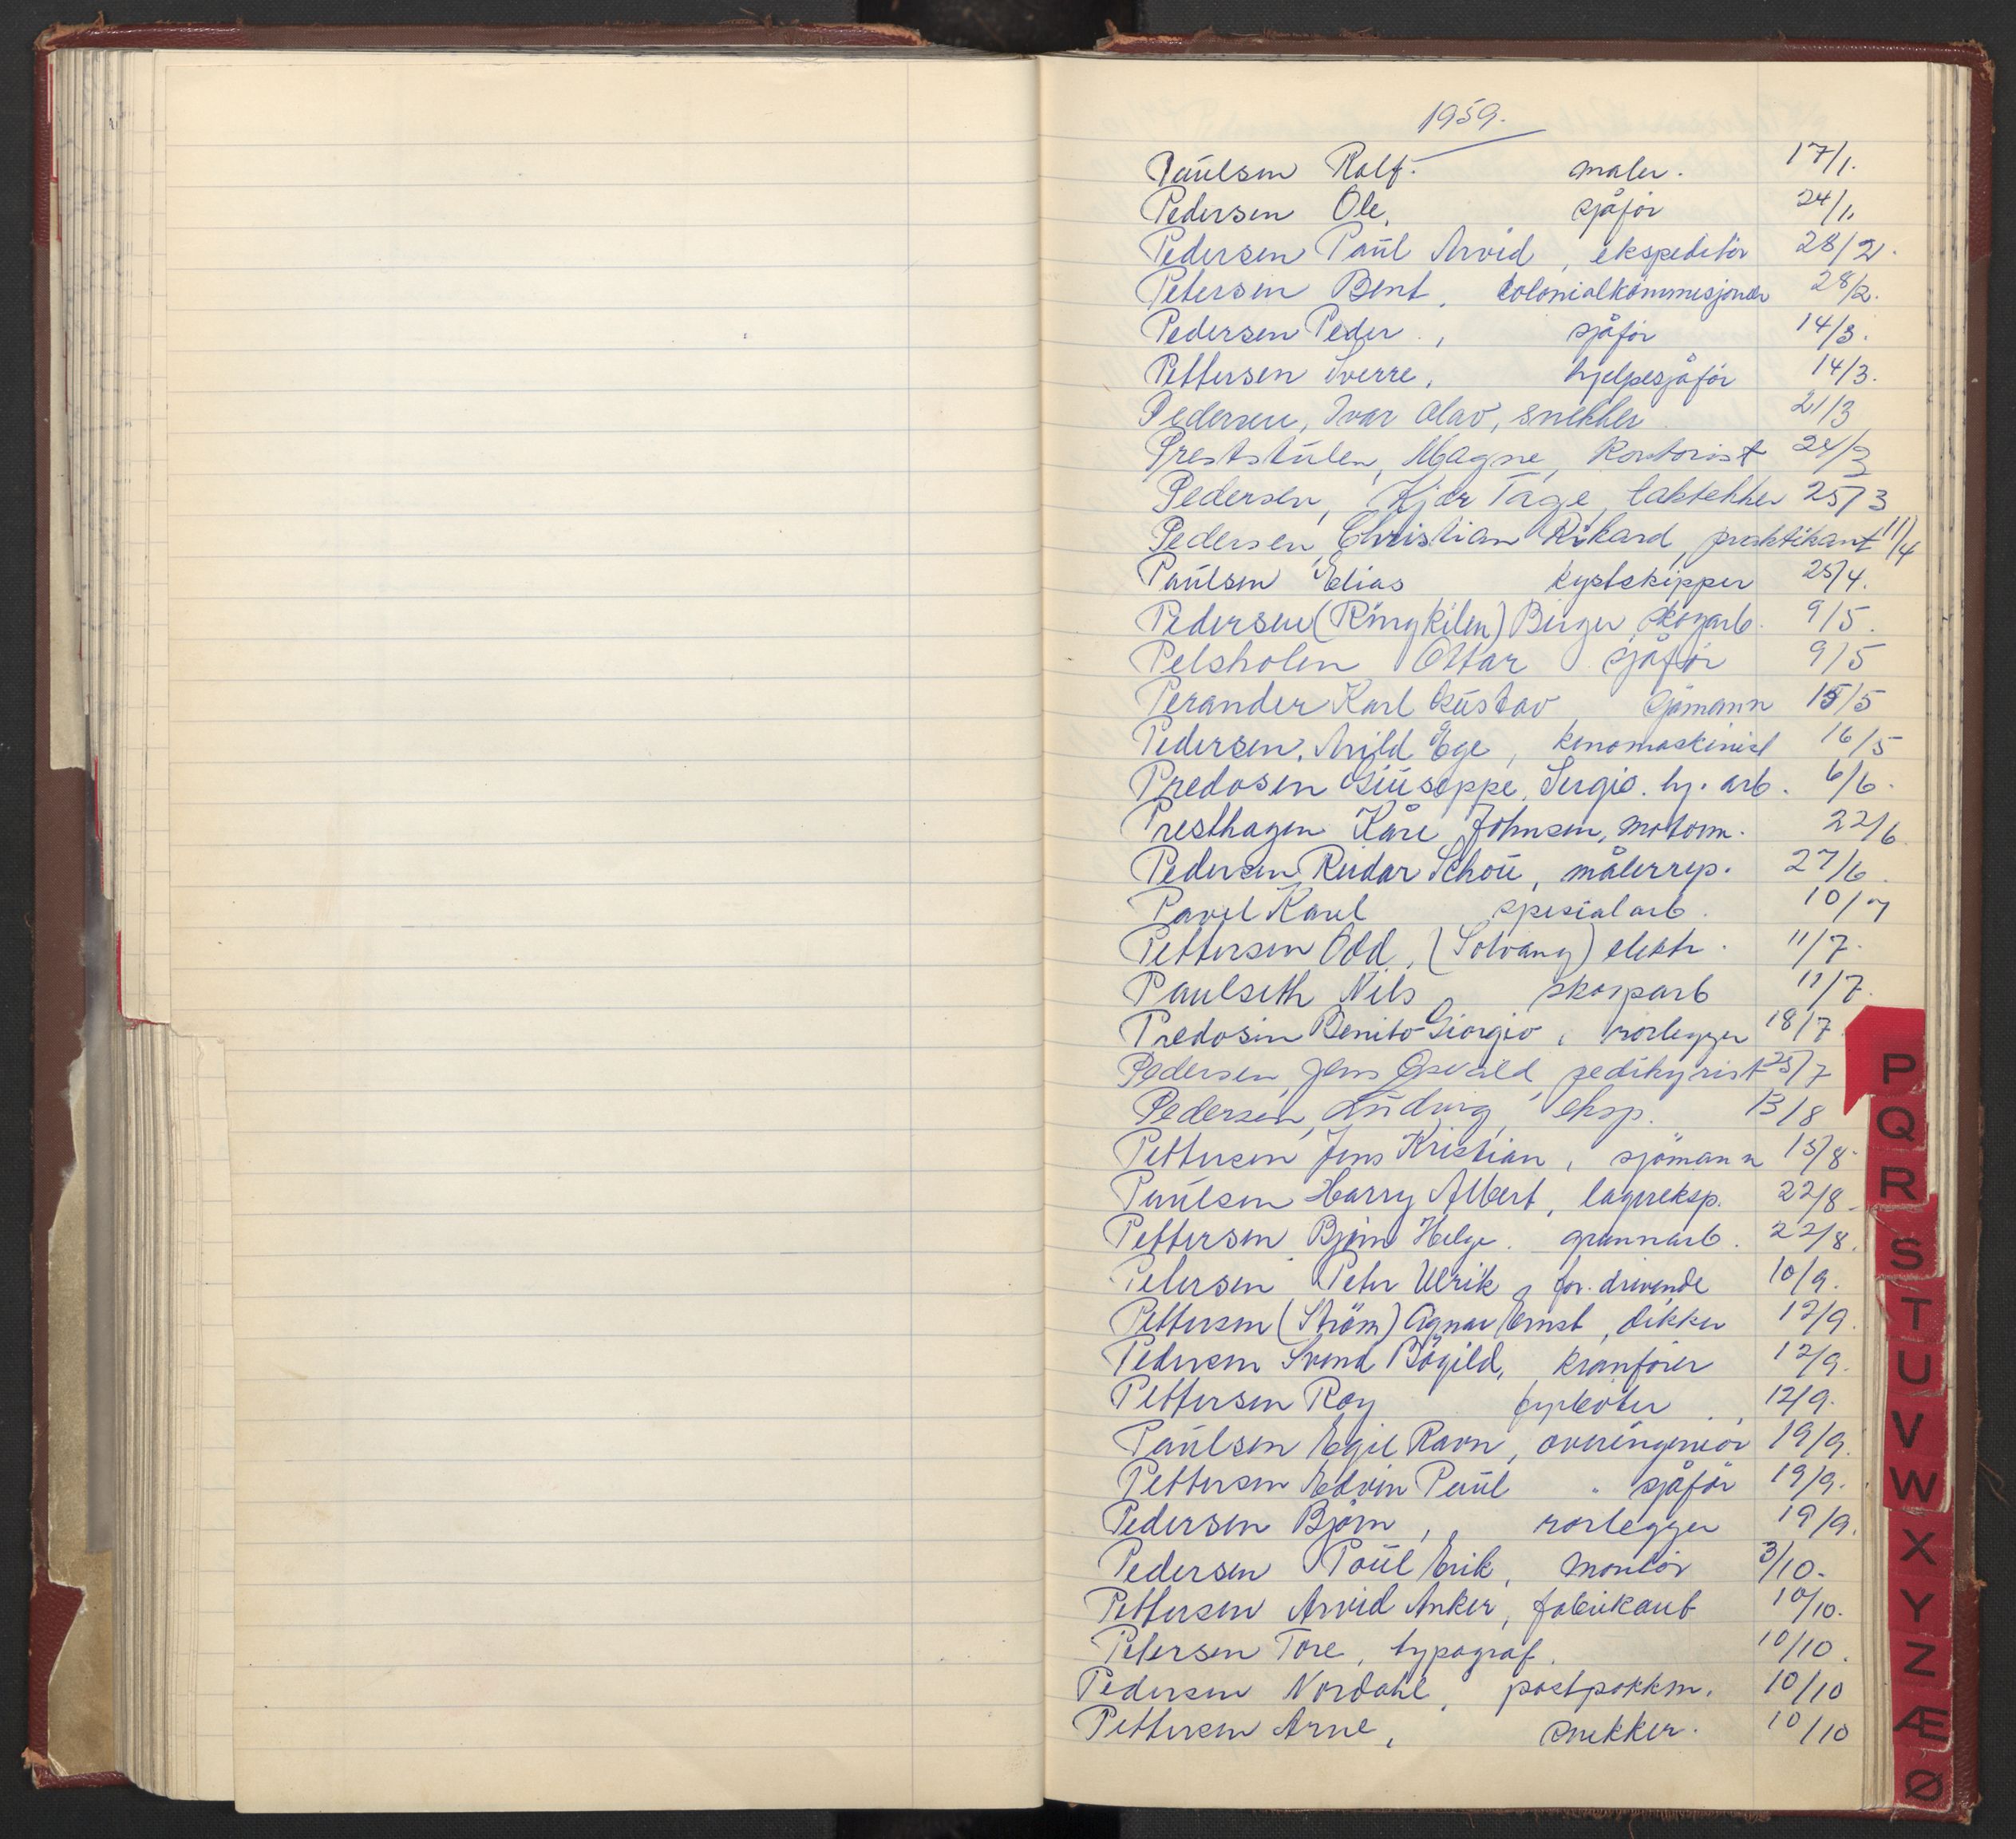 1959.
Paulsen Rolf. maler. 17/1.
Pedersen Ole, sjåför 24/1.
Pedersen Paul Arvid, ekspeditör 28/2.
Petersen Bent, Colonialkommisjonær 28/2.
Pedersen Peder, sjåför 14/3.
Pettersen Sverre, hjelpesjåför 14/3.
Pedersen, Ivar Olav, snekker 21/3
Preststulen, Magne, Kontorist 24/3
Pedersen, Kjær Tage, taktekker 25/3
Pedersen, Christian Rikard, praktikant 11/4
Paulsen Elias kystskipper 25/4.
Pedersen (Ringkilen) Birger, skogarb. 9/5.
Pelsholen Ottar sjåför 9/5
Perander Karl Gustav, sjömann 15/5
Pedersen, Arild Ege, kinomaskinist 16/5
Predosen Giuseppe, Sergio. hj. arb. 6/6.
Presthagen Kåre Johnsen, motorm. 22/6
Pedersen Reidar Schou, målerrep. 27/6.
Pavel Karel spesialarb. 10/7
Pettersen Odd, (Solvang) elektr. 11/7.
Paulseth Nils, skogarb 11/7.
Predosin Benito Giorgio, rörlegger 18/7.
Pedersen, Jens Osvald, pedikyrist 25/7
Pedersen, Ludvig, eksp. 13/8
Pettersen Jens Kristian, sjömann 15/8.
Paulsen Harry Albert, lagereksp. 22/8.
Pettersen Björn Helge. grunnarb. 22/8.
Petersen Peter Ulrik, for. drivende 10/9.
Pettersen (Ström) Agnar Ernst, dikker 12/9.
Pedersen Svend Bögild, kranförer 12/9.
Pettersen Roy fyrböter 12/9.
Paulsen Egil Ravn, overingeniör 19/9.
Pettersen Edvin Paul sjåför 19/9.
Pedersen Björn, rörlegger 19/9.
Pedersen Poul Erik, montör 3/10.
Pettersen Arvid Anker, fabrikarb 10/10.
Petersen Tore, typograf. 10/10.
Pedersen Nordahl, postpakkm. 10/10
Pettersen Arne, snekker. 10/10
P
Q
R
S
T
U
V
W
X
Y
Z
Æ
Ø